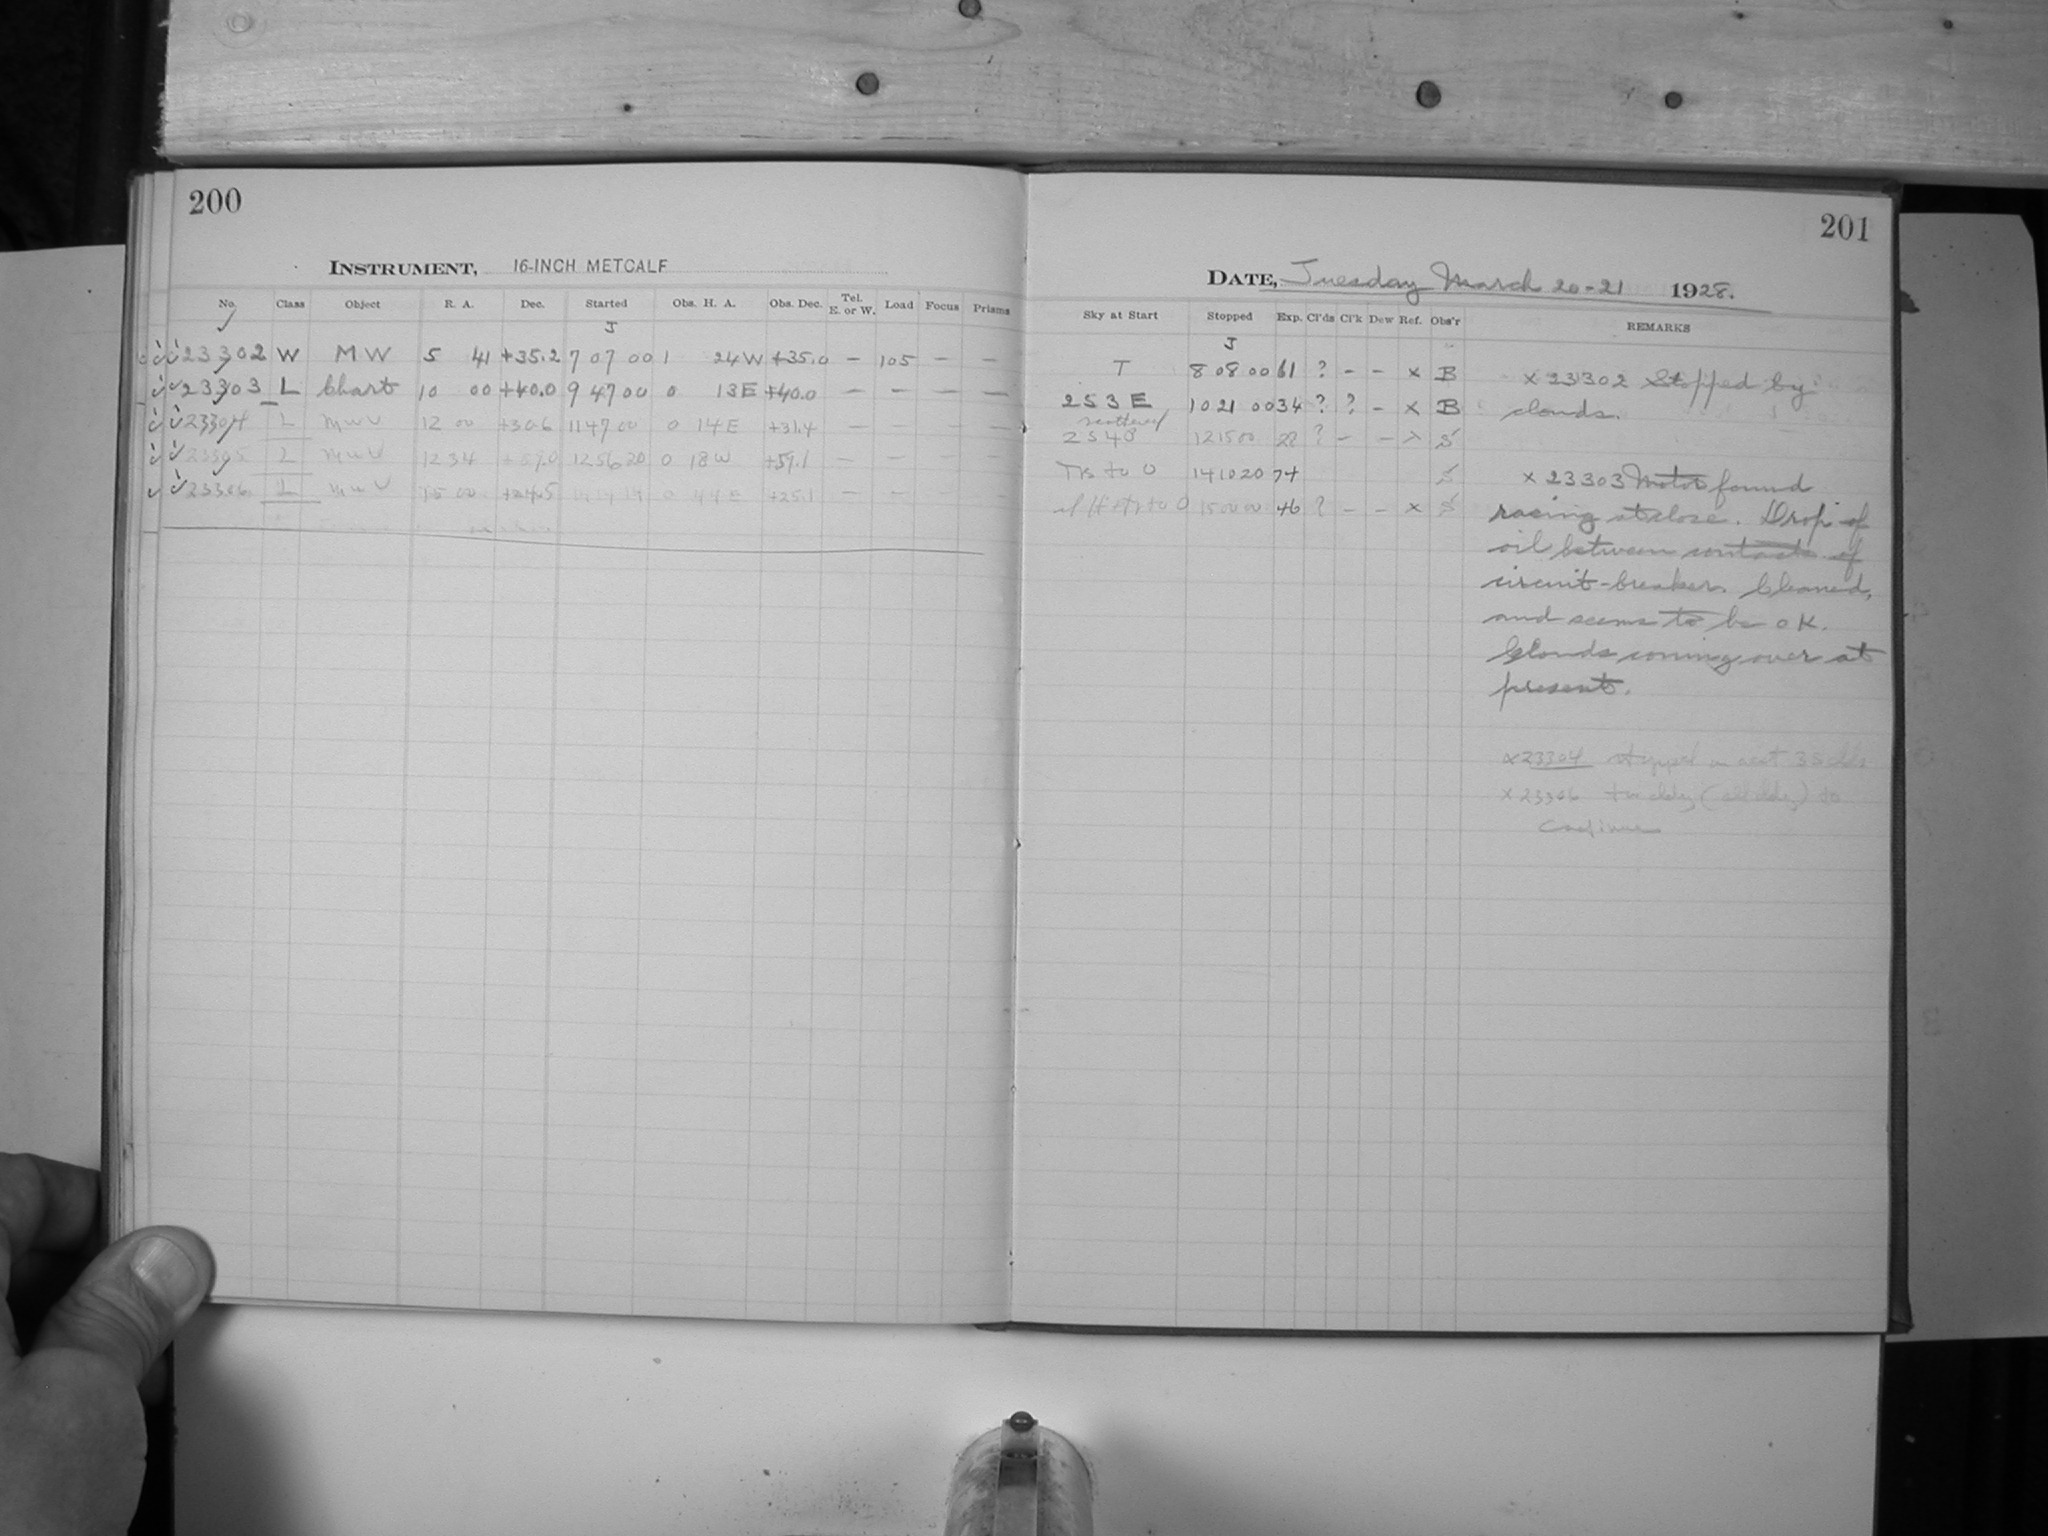 200
INSTRUMENT, 16-INCH METCALF
No. Class Object R. A. Dec. Started Obs. H. A. Obs. Dec. Tel. E. or W. Load Focus Prisms
J
23302 W MW 5 41 +35.2 7 07 00 1 24W +35.0 — 105 — —
23303 L Chart 10 00 +40.0 9 47 00 0 13E +40.0 — — — —
23304 L 12 00 +30.6 11 47 00 0 14E +31.4 — — — —
23305 L 12 34 12 56 20 0 18W +59.1 — — — —
23306 L 15 00 +24.5 0 44E +25.1 — — — —
201
DATE, Tuesday March 20-21 1928.
Sky at Start Stopped Exp. Cl'ds Cl'k Dew Ref. Obs'r REMARKS
J
T 8 08 00 61 ? - - x B
2S3E 10 21 00 34 ? ? - x B
scattered
12 15 00 28 ? - - S
to 0 14 10 20 74 S
to 0 15 00 00 46 ? - - x S
x 23302 Stopped by
clouds.
x 23303 Motor found
racing at close. Drop of
oil between contacts of
circuit-breaker. Cleaned,
and seems to be OK.
Clouds coming over at
present.
x 23304 stopped
x 23306 to